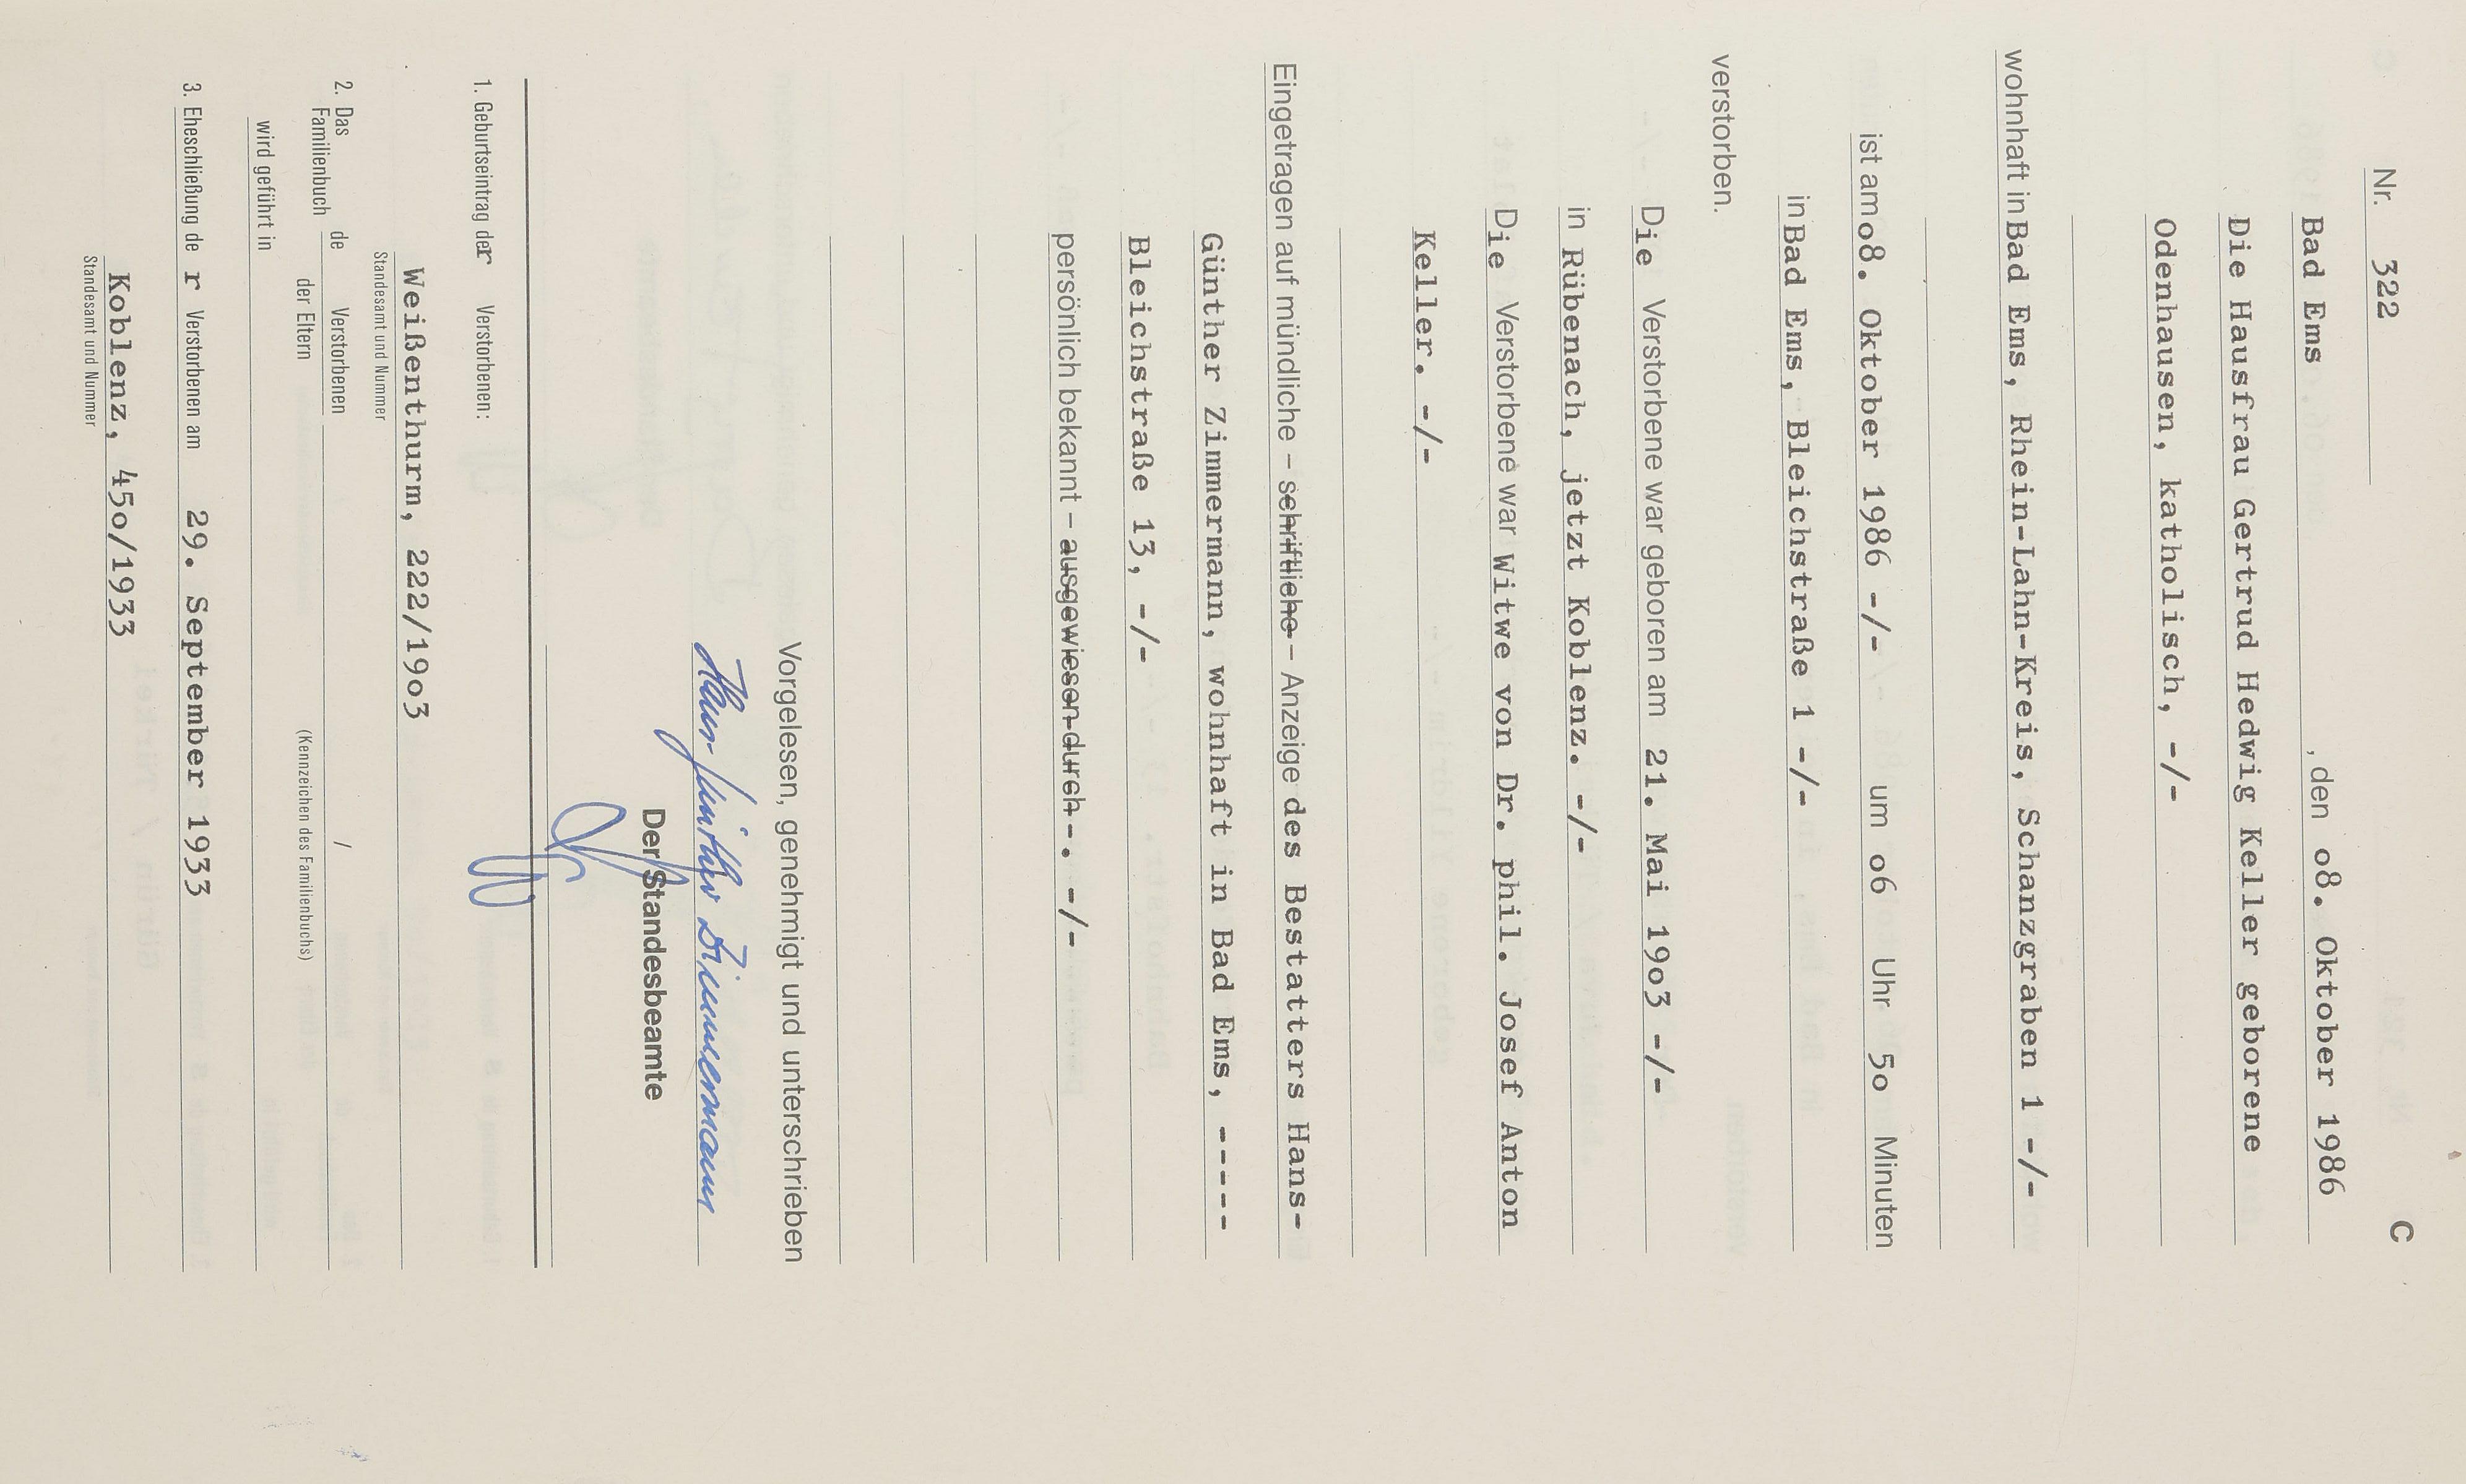 C
Nr. 322
Bad Ems, den o8. Oktober 1986
Die Hausfrau Gertrud Hedwig Keller geborene
Odenhausen, katholisch, -/-
wohnhaft in Bad Ems, Rhein-Lahn-Kreis, Schanzgraben 1 -/-
ist am o8. Oktober 1986 -/- um o6 Uhr 5o Minuten
in Bad Ems, Bleichstraße 1 -/-
verstorben.
Die Verstorbene war geboren am 21. Mai 19o3 -/-
in Rübenach, jetzt Koblenz. -/-
Die Verstorbene war Witwe von Dr. phil. Josef Anton
Keller. -/-
Eingetragen auf mündliche – schriftliche – Anzeige des Bestatters Hans-
Günther Zimmermann, wohnhaft in Bad Ems, -----
Bleichstraße 13, -/-
persönlich bekannt – ausgewiesen durch -. -/-
Vorgelesen, genehmigt und unterschrieben
Hans-Günther Zimmermann
Der Standesbeamte
1. Geburtseintrag der Verstorbenen:
Weißenthurm, 222/19o3
Standesamt und Nummer
2. Das Familienbuch de Verstorbenen /
der Eltern (Kennzeichen des Familienbuchs)
wird geführt in
3. Eheschließung de r Verstorbenen am 29. September 1933
Koblenz, 45o/1933
Standesamt und Nummer